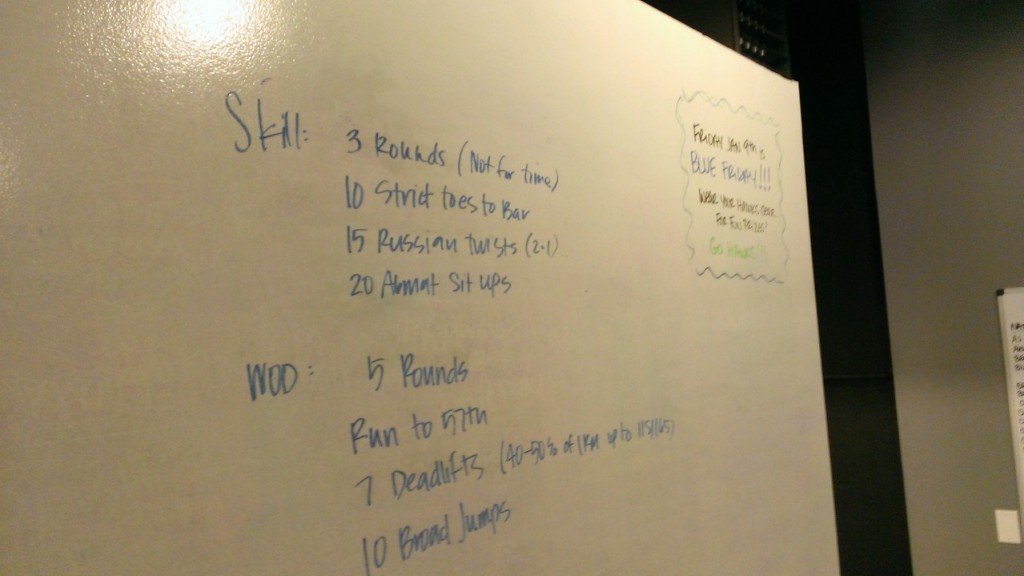 Skill: 3 Rounds (Not for time)
10 Strict toes to Bar
15 Russian twists (2-1)
20 Abmat Sit ups
WOD: 5 Rounds
Run to 57th
7 Deadlifts (40-50% of 1RM up to 115/165)
10 Broad Jumps
FRIDAY JAN 9th is
BLUE FRIDAY!!!
WEAR YOUR HAWKS GEAR
FOR FUN PRIZES!
GO HAWKS!!!